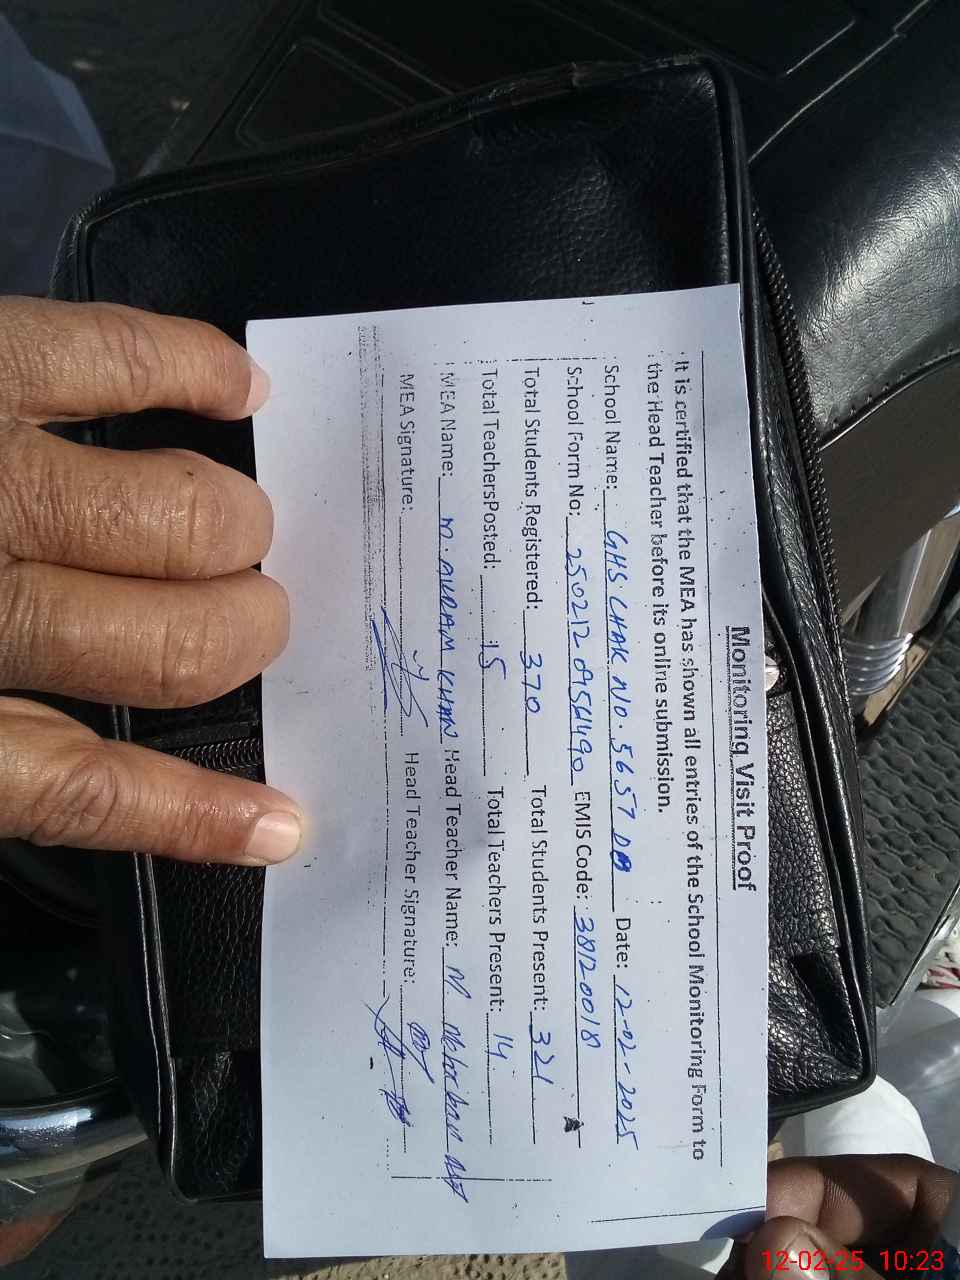 Monitoring Visit Proof
It is certified that the MEA has shown all entries of the School Monitoring Form to
the Head Teacher before its online submission.
School Name: GHS CHAK NO. 56 57 DB Date: 12-02-2025
School Form No: 250212 EMIS Code: 38120018
Total Students Registered: 370 Total Students Present: 321
Total TeachersPosted: 15 Total Teachers Present: 14
MEA Name: M. AKRAM KHAN Head Teacher Name: M.
MEA Signature: Head Teacher Signature:
12-02-25 10:23